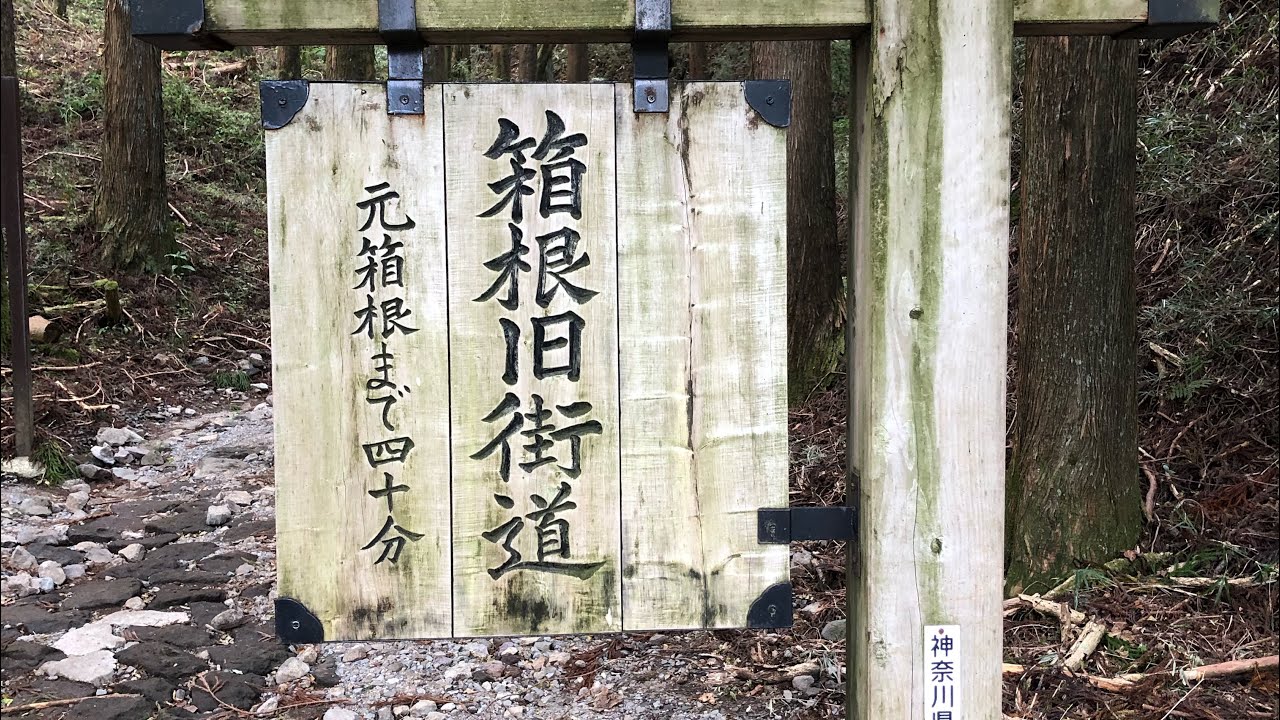 箱根旧街道
元箱根まで四十分
神奈川県